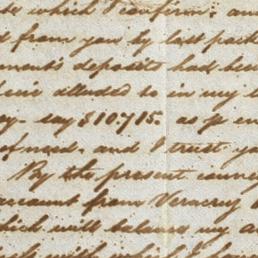 which I confirm: an
d from you by last pack
ment's deposit had been
alluded to in my l
say $10715. as p
of ment, and I trust yo
By the present conve
account from Veracruz
which will balance my a
with which I